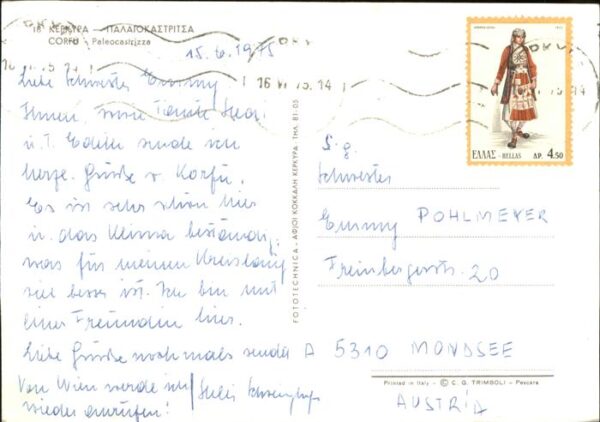 18 ΚΕΡΚΥΡΑ – ΠΑΛΑΙΟΚΑΣΤΡΙΤΣΑ
CORFU - Paleocastrizza
15.6.1975
16 VI 75.14
Liebe Schwester Emmy
Ihnen, sowie Tante
u. T. Edith sende ich
herzl. Grüße v. Korfu.
Es ist sehr schön hier
u. das Klima beständig,
was für meinen Kreislauf
viel besser ist. Ich bin mit
einer Freundin hier.
Liebe Grüße nochmals sendet
Von Wien werde ich
wieder anrufen!
FOTOTECHNICA - ΑΦΙΟΙ ΚΟΚΚΑΛΗ ΚΕΡΚΥΡΑ· ΤΗΛ. 81-05
ΕΛΛΑΣ - HELLAS ΔΡ. 4.50
S. g.
Schwester
Emmy POHLMEYER
Freinbergerstr. 20
A 5310 MONDSEE
AUSTRIA
Printed in Italy - © C. G. TRIMBOLI - Pescara